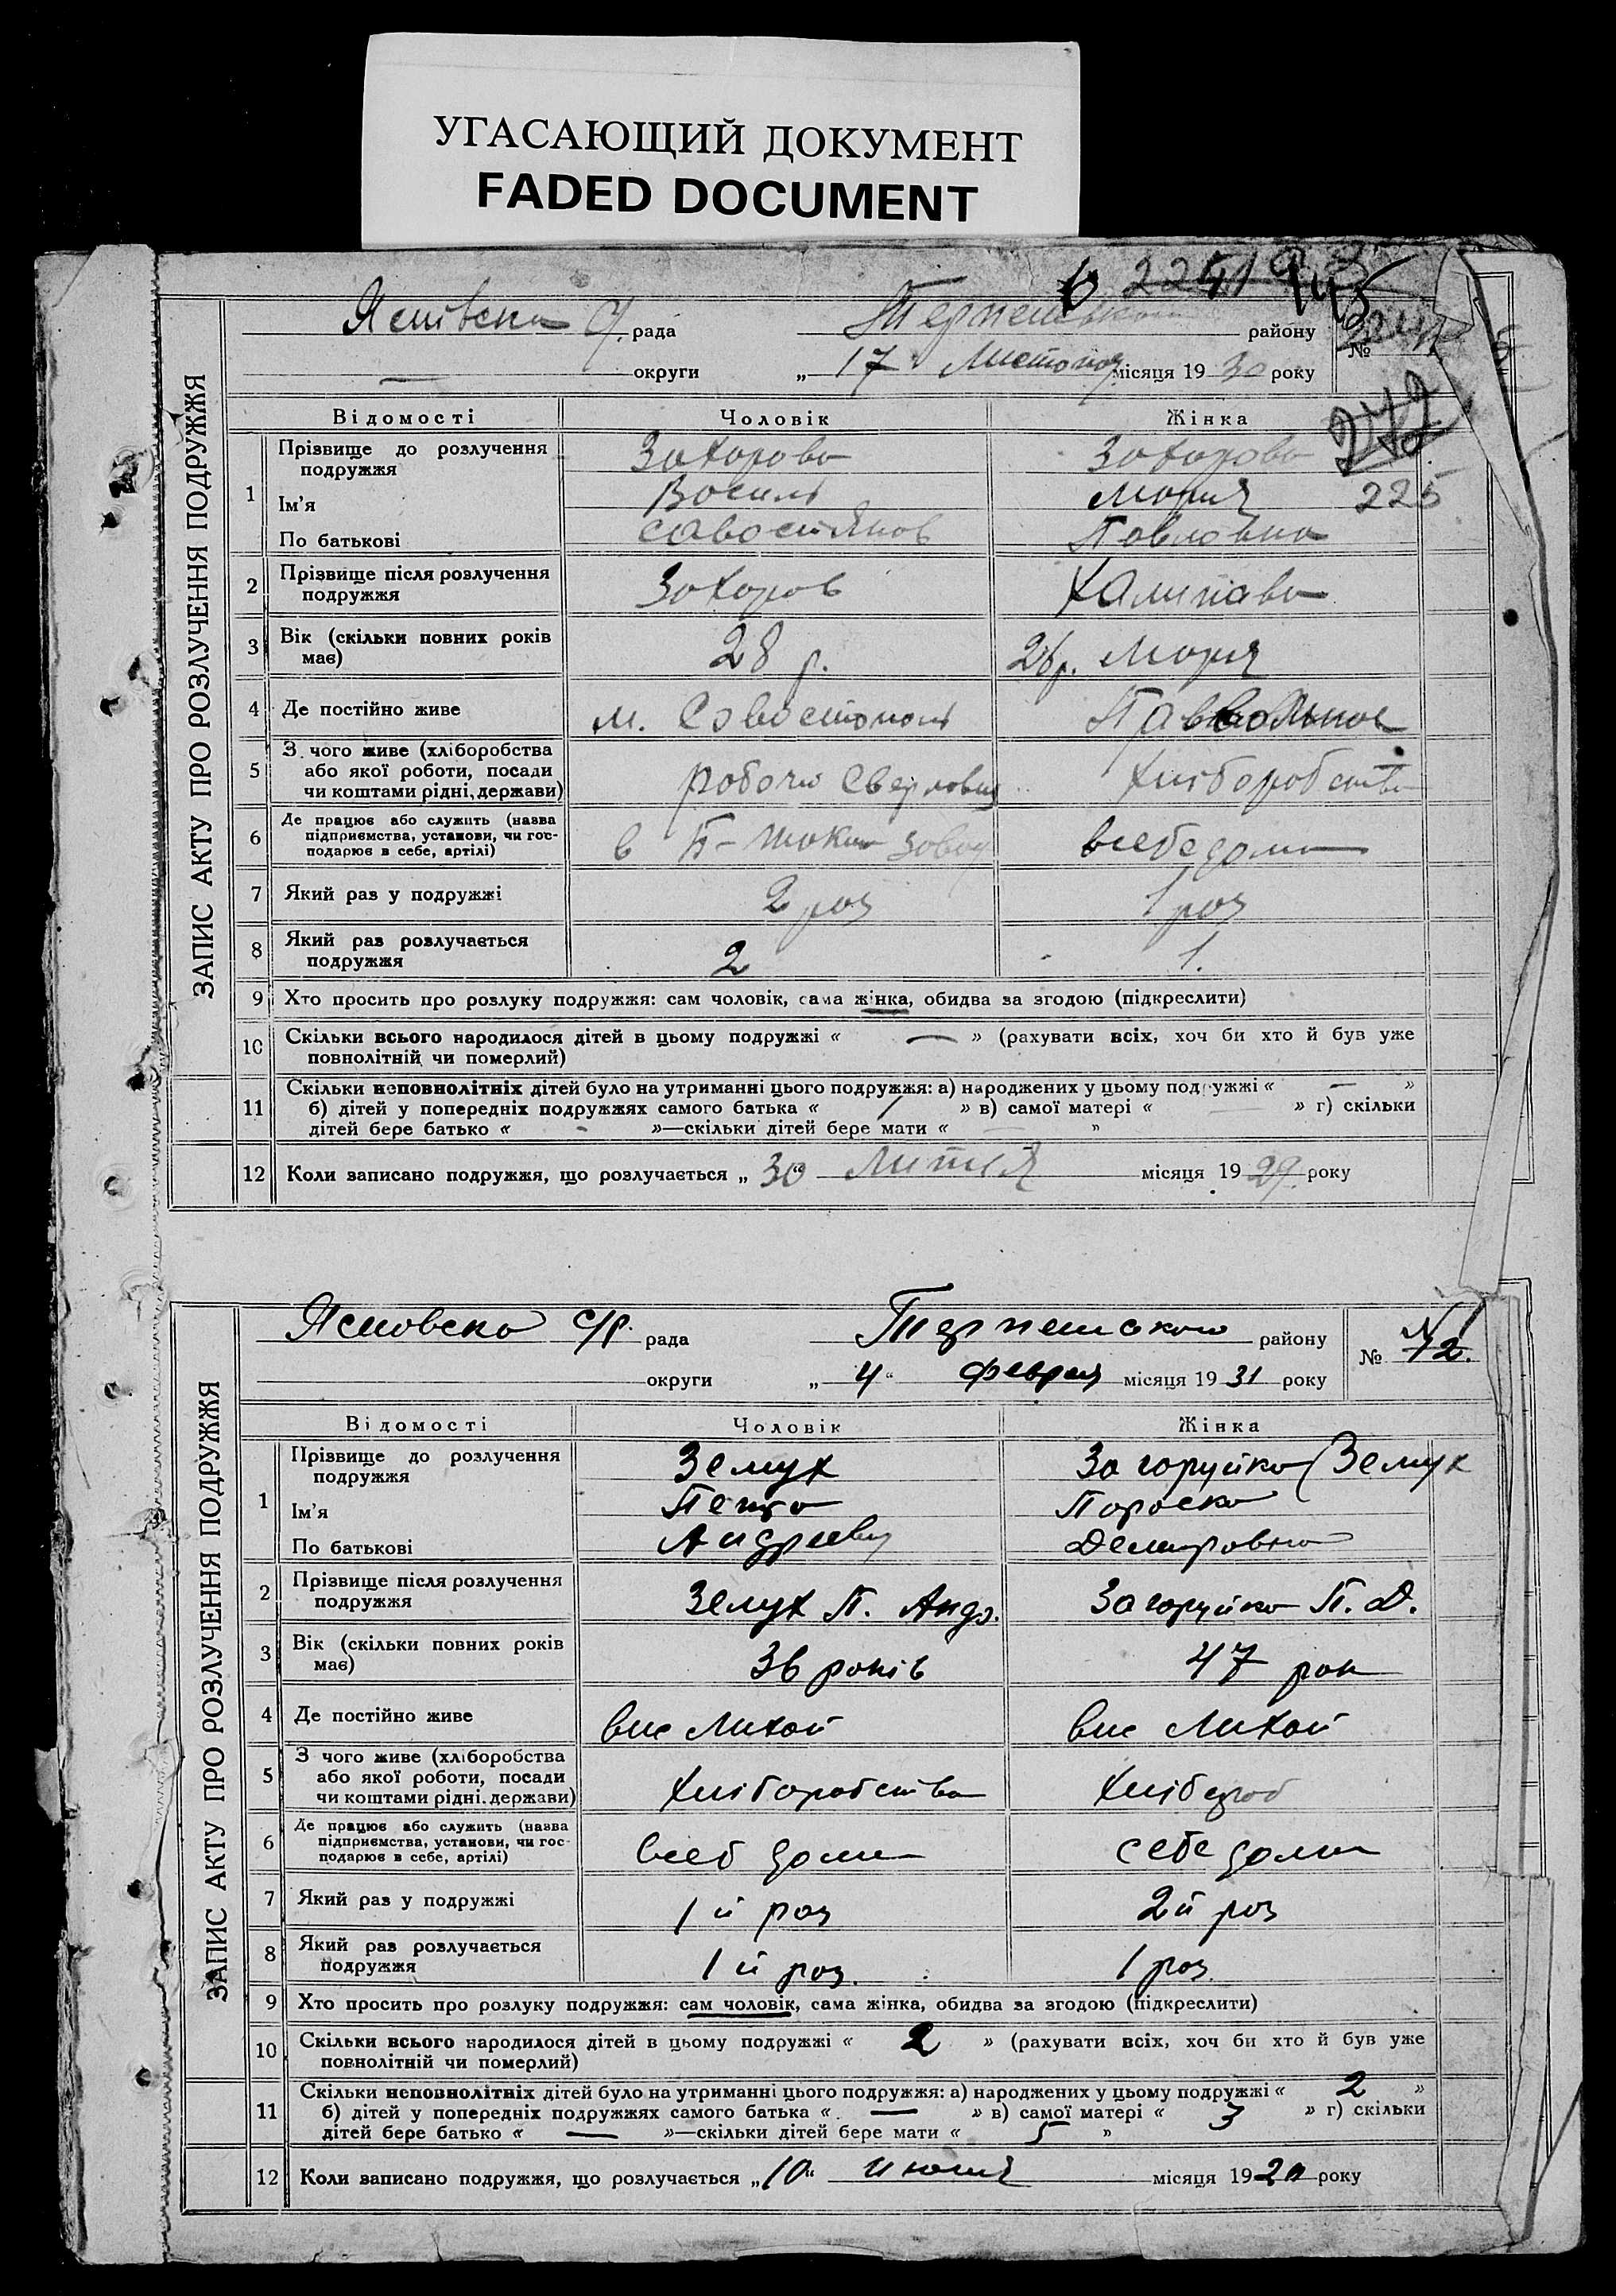 УГАСАЮЩИЙ ДОКУМЕНТ
FADED DOCUMENT
ЗАПИС АКТУ ПРО РОЗЛУЧЕННЯ ПОДРУЖЖЯ
рада району №
272
округи „17“ Листопад місяця 1930 року
Відомості Чоловік Жінка
225
1 Прізвище до розлучення подружжя Захарова Захарова
Ім'я Василь Мария
По батькові Павловна
2 Прізвище після розлучення подружжя Захаров
3 Вік (скільки повних років має) 28 р. 26 р. Мария
4 Де постійно живе м.
5 З чого живе (хліборобства або якої роботи, посади чи коштами рідні, держави) Хліборобства
6 Де працює або служить (назва підприємства, установи, чи господарює в себе, артілі) в всебе дома
7 Який раз у подружжі 2 раз 1 раз
8 Який раз розлучається подружжя 2 1.
9 Хто просить про розлуку подружжя: сам чоловік, сама жінка, обидва за згодою (підкреслити)
10 Скільки всього народилося дітей в цьому подружжі « — » (рахувати всіх, хоч би хто й був уже
повнолітній чи померлий)
11 Скільки неповнолітніх дітей було на утриманні цього подружжя: а) народжених у цьому подружжі « — »
б) дітей у попередніх подружжях самого батька « / » в) самої матері « — » г) скільки
дітей бере батько « - »—скільки дітей бере мати « — »
12 Коли записано подружжя, що розлучається „30“ Липня місяця 1929 року
ЗАПИС АКТУ ПРО РОЗЛУЧЕННЯ ПОДРУЖЖЯ
с/р. рада району № 12.
округи „4“ Февраля місяця 1931 року
Відомості Чоловік Жінка
1 Прізвище до розлучення подружжя Земух Загоруйко (Земух
Ім'я Петро Пораска
По батькові Андреевич
2 Прізвище після розлучення подружжя Земух П. Андр. Загоруйко П. Д.
3 Вік (скільки повних років має) 36 років 47 рок
4 Де постійно живе вис Лихой вис Лихой
5 З чого живе (хліборобства або якої роботи, посади чи коштами рідні, держави) Хліборобства Хлібороб
6 Де працює або служить (назва підприємства, установи, чи господарює в себе, артілі) всеб дома себе дома
7 Який раз у подружжі 1й раз 2й раз
8 Який раз розлучається подружжя 1й раз. 1 раз
9 Хто просить про розлуку подружжя: сам чоловік, сама жінка, обидва за згодою (підкреслити)
10 Скільки всього народилося дітей в цьому подружжі « 2 » (рахувати всіх, хоч би хто й був уже
повнолітній чи померлий)
11 Скільки неповнолітніх дітей було на утриманні цього подружжя: а) народжених у цьому подружжі « 2 »
б) дітей у попередніх подружжях самого батька « — » в) самої матері « 3 » г) скільки
дітей бере батько « — »—скільки дітей бере мати « 5 »
12 Коли записано подружжя, що розлучається „10“ місяця 1920 року